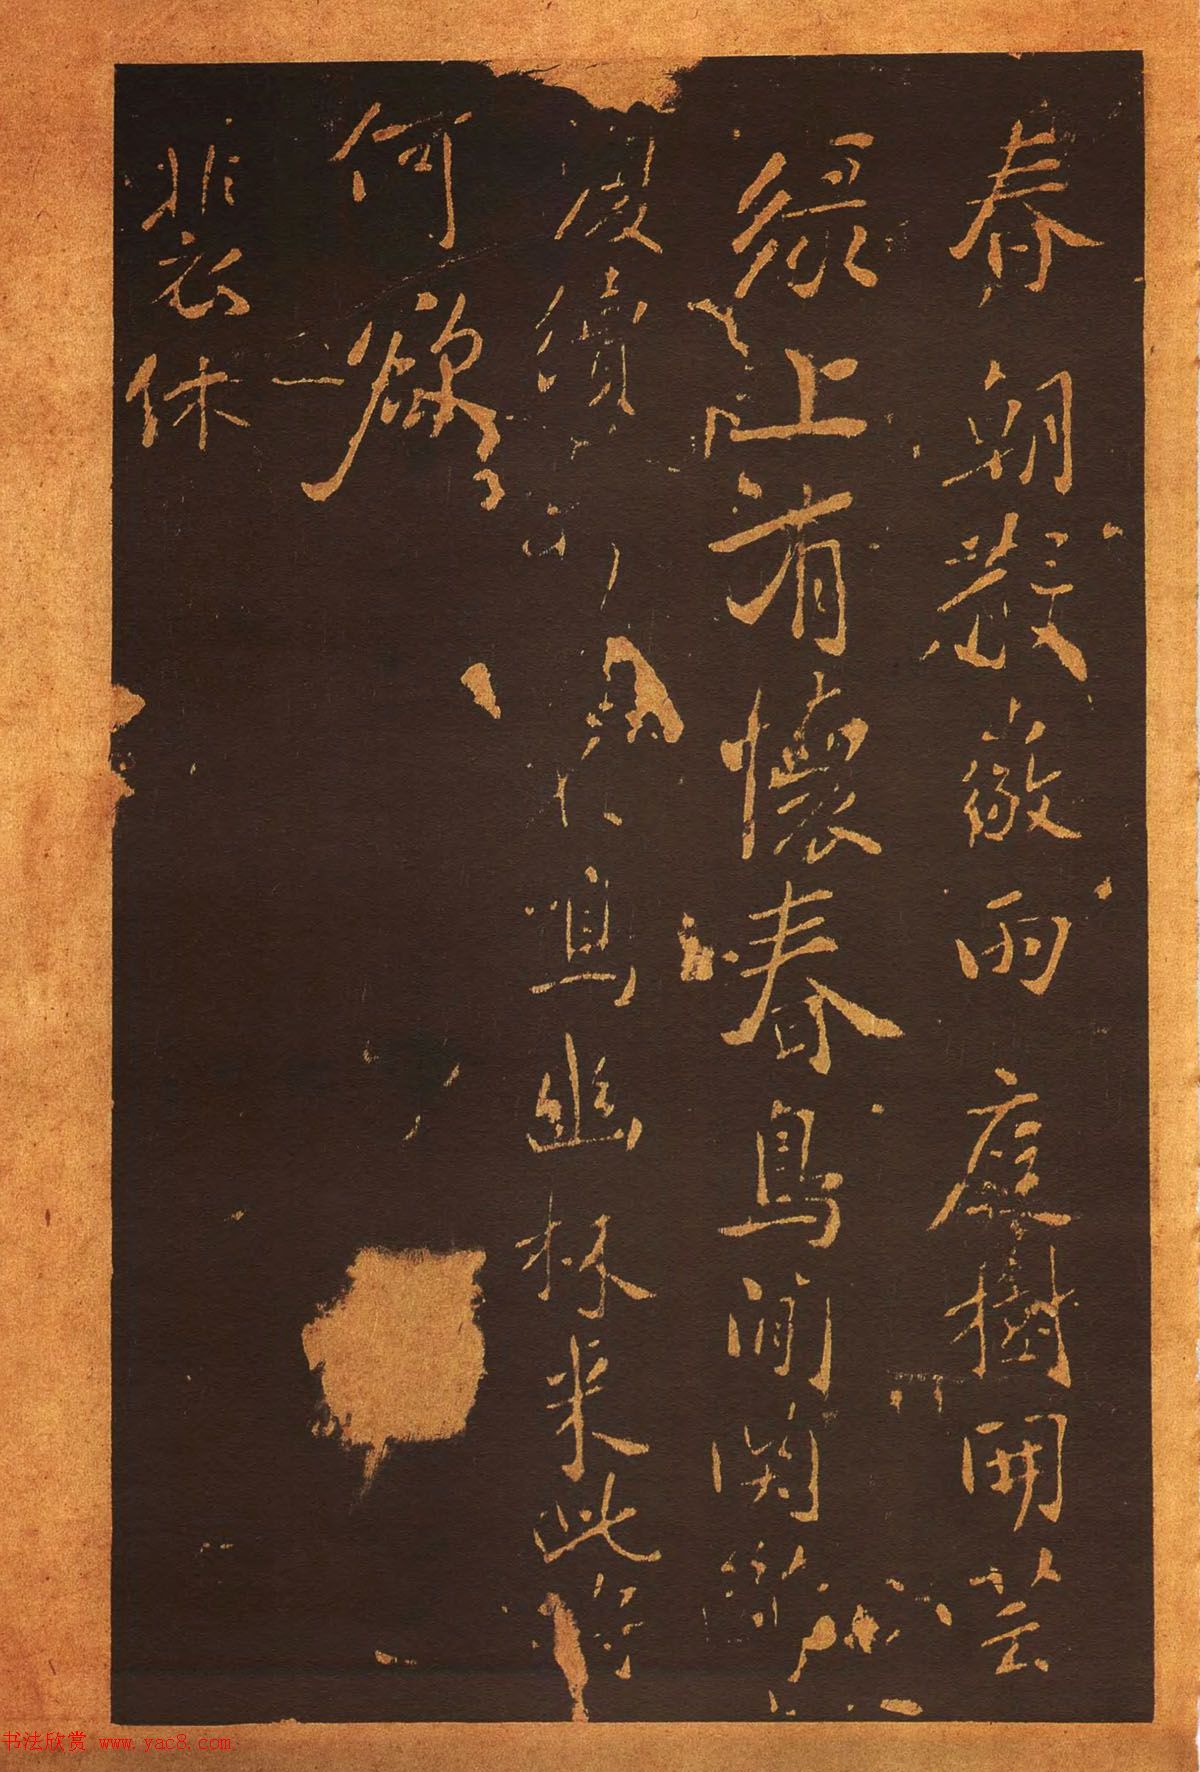 春朝散微雨庭樹開芸
綠上有懷春鳥間關
復續
鳴幽林來此將
何欲
裴休
书法欣赏 www.yac8.com